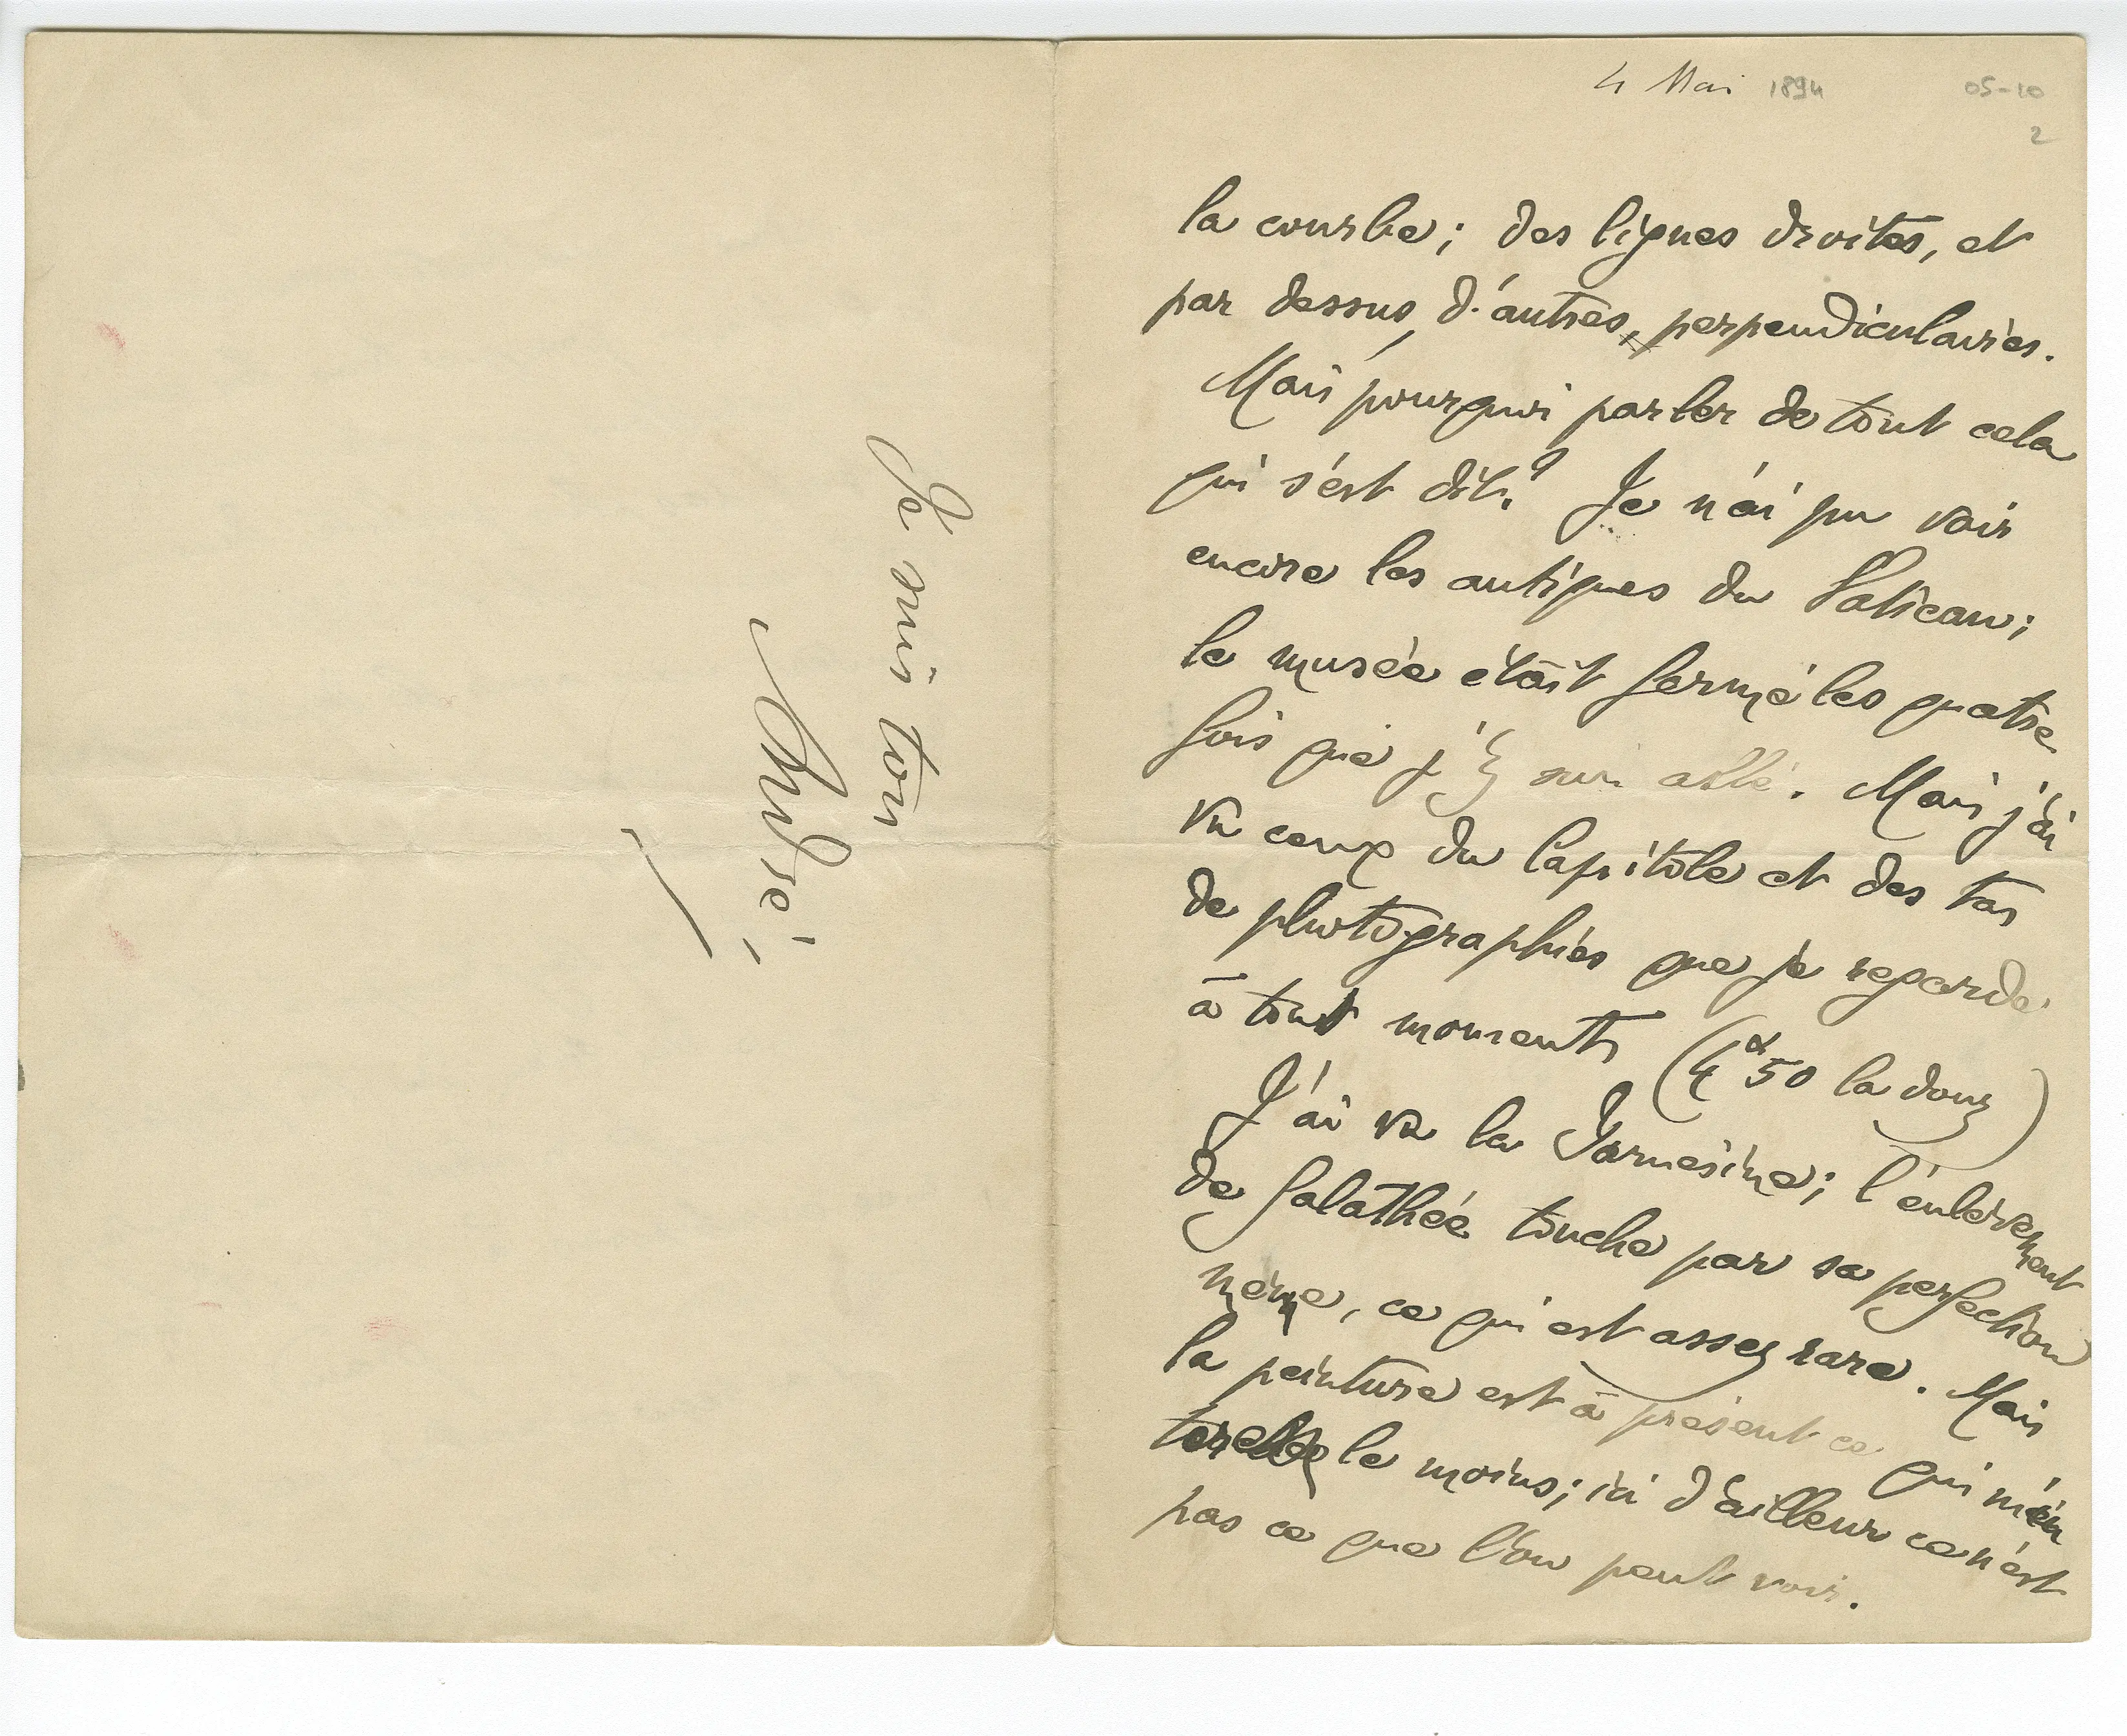 Je suis ton
André
4 Mai 1894
05-10
2
la courbe; des lignes droites, et
par dessus, d'autres, perpendiculaires.
Mais pourquoi parler de tout cela
qui s'est dit? Je n'ai pu voir
encore les antiques du Vatican;
le musée était fermé les quatre
fois que j'y suis allé. Mais j'ai
vu ceux du Capitole et des tas
de photographies que je regarde
à tout moments (4 50 la douz)
J'ai vu la Farnésine; l'enlèvement
de Galathée touche par sa perfection
même, ce qui est assez rare. Mais
la peinture est à présent ce qui m'in
téresse le moins; ici d'ailleurs ce n'est
pas ce que l'on peut voir.